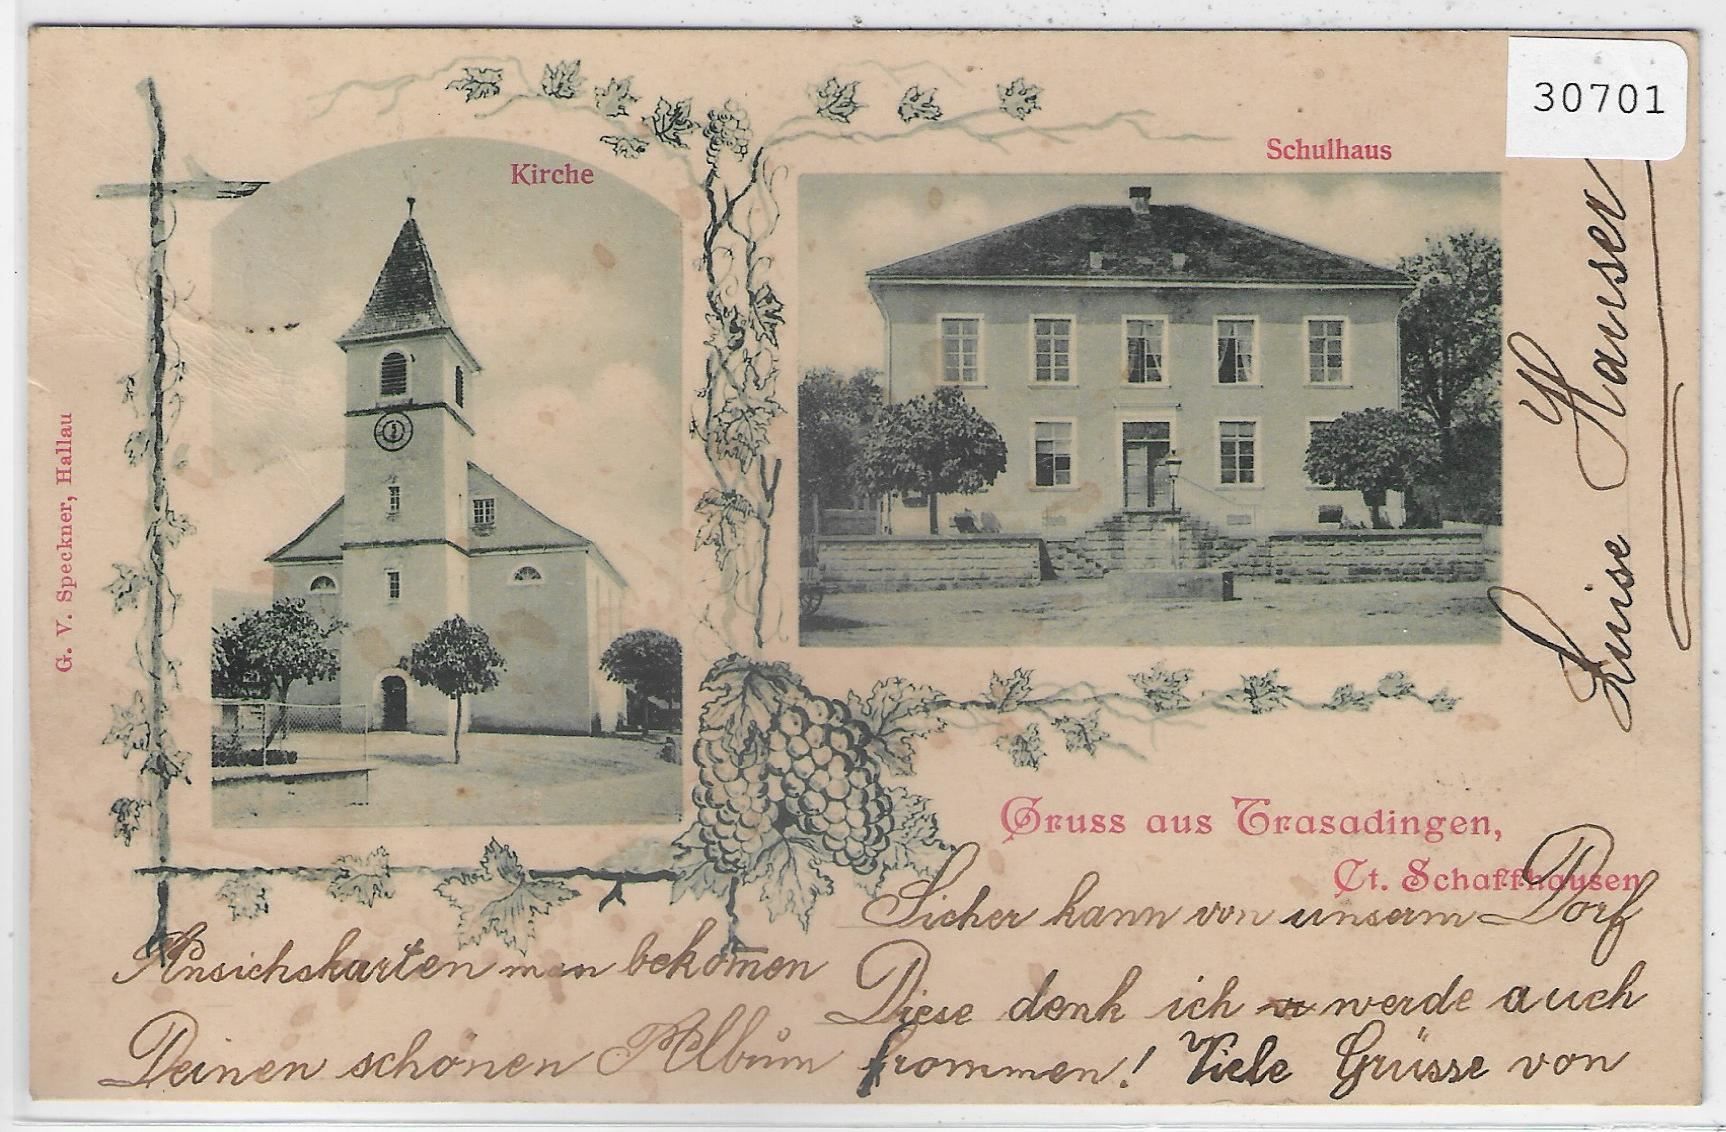 30701
Kirche
Schulhaus
G. V. Speckner, Hallau
Gruss aus Trasadingen,
Ct. Schaffhausen
Sicher kann von unserm Dorf
Ansichskarten man bekom̄en
Diese denk ich werde auch
Deinen schönen Album frommen! Viele Grüsse von
Luise Hauser